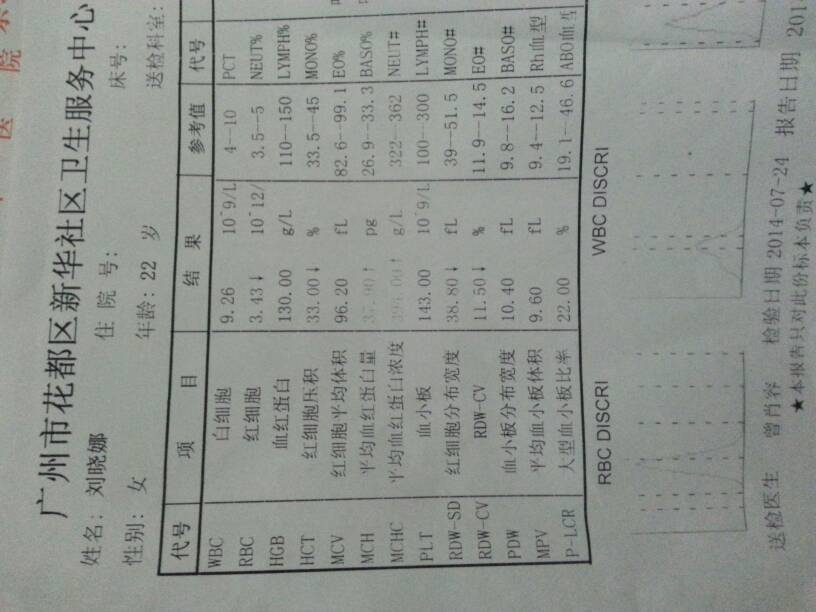 医 院
广州市花都区新华社区卫生服务中心
姓名: 刘晓娜 住 院 号: 床号:
性别: 女 年龄: 22 岁 送检科室:
代号 项 目 结 果 参考值 代号
WBC 白细胞 9.26 10^9/L 4--10 PCT
RBC 红细胞 3.43↓ 10^12/ 3.5--5 NEUT%
HGB 血红蛋白 130.00 g/L 110--150 LYMPH%
HCT 红细胞压积 33.00↓ % 33.5--45 MONO%
MCV 红细胞平均体积 96.20 fL 82.6--99.1 EO%
MCH 平均血红蛋白量 37.90↑ pg 26.9--33.3 BASO%
MCHC 平均血红蛋白浓度 ↑ g/L 322--362 NEUT#
PLT 血小板 143.00 10^9/L 100--300 LYMPH#
RDW-SD 红细胞分布宽度 38.80↓ fL 39--51.5 MONO#
RDW-CV RDW-CV 11.50↓ % 11.9--14.5 EO#
PDW 血小板分布宽度 10.40 fL 9.8--16.2 BASO#
MPV 平均血小板体积 9.60 fL 9.4--12.5 Rh血型
P-LCR 大型血小板比率 22.00 % 19.1--46.6 ABO血型
RBC DISCRI WBC DISCRI
送检医生 曾肖容 检验日期 2014-07-24 报告日期 201
★本报告只对此份标本负责★